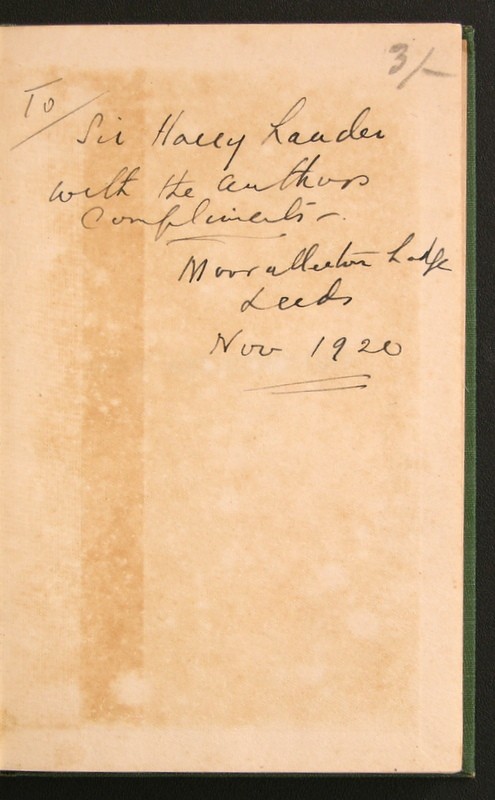 3/-
To
Sir Harry Lauder
with the authors
compliments -.
Moorallerton Lodge
Leeds
Nov 1920